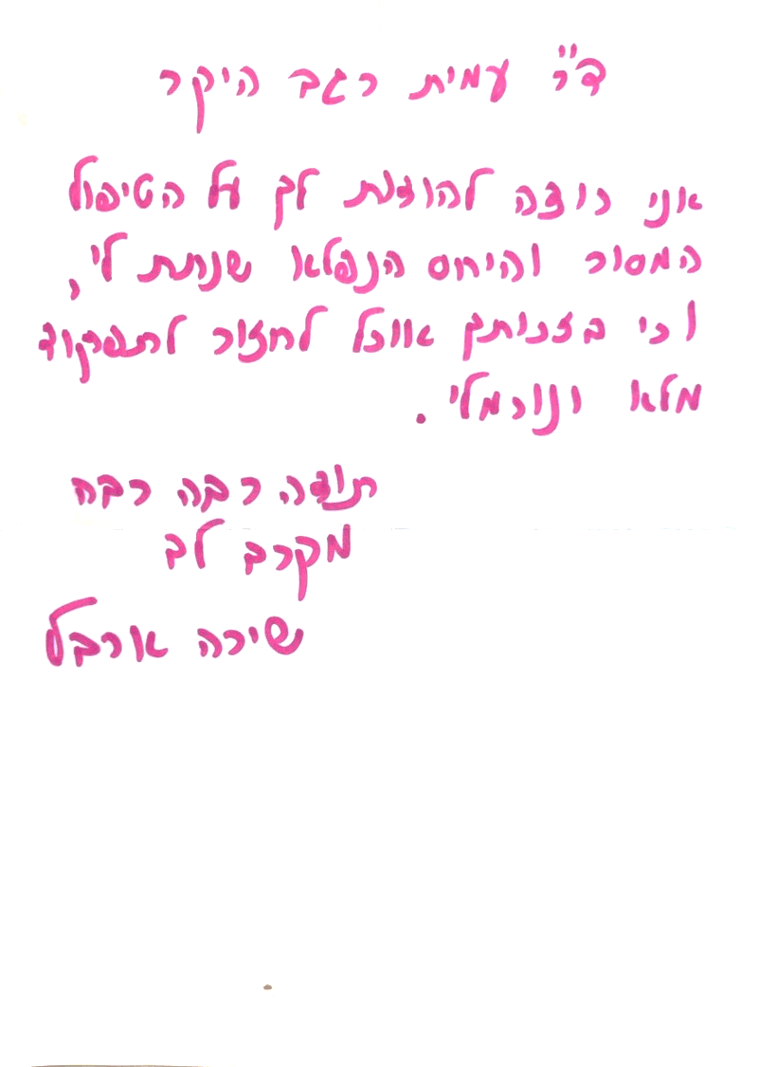 ד"ר עמית רגב היקר
אני רוצה להודות לך על הטיפול
המסור והיחס הנפלא שנתת לי,
וכי בזכותך אוכל לחזור לתפקוד
מלא ונורמלי.
תודה רבה רבה
מקרב לב
שירה ארבל